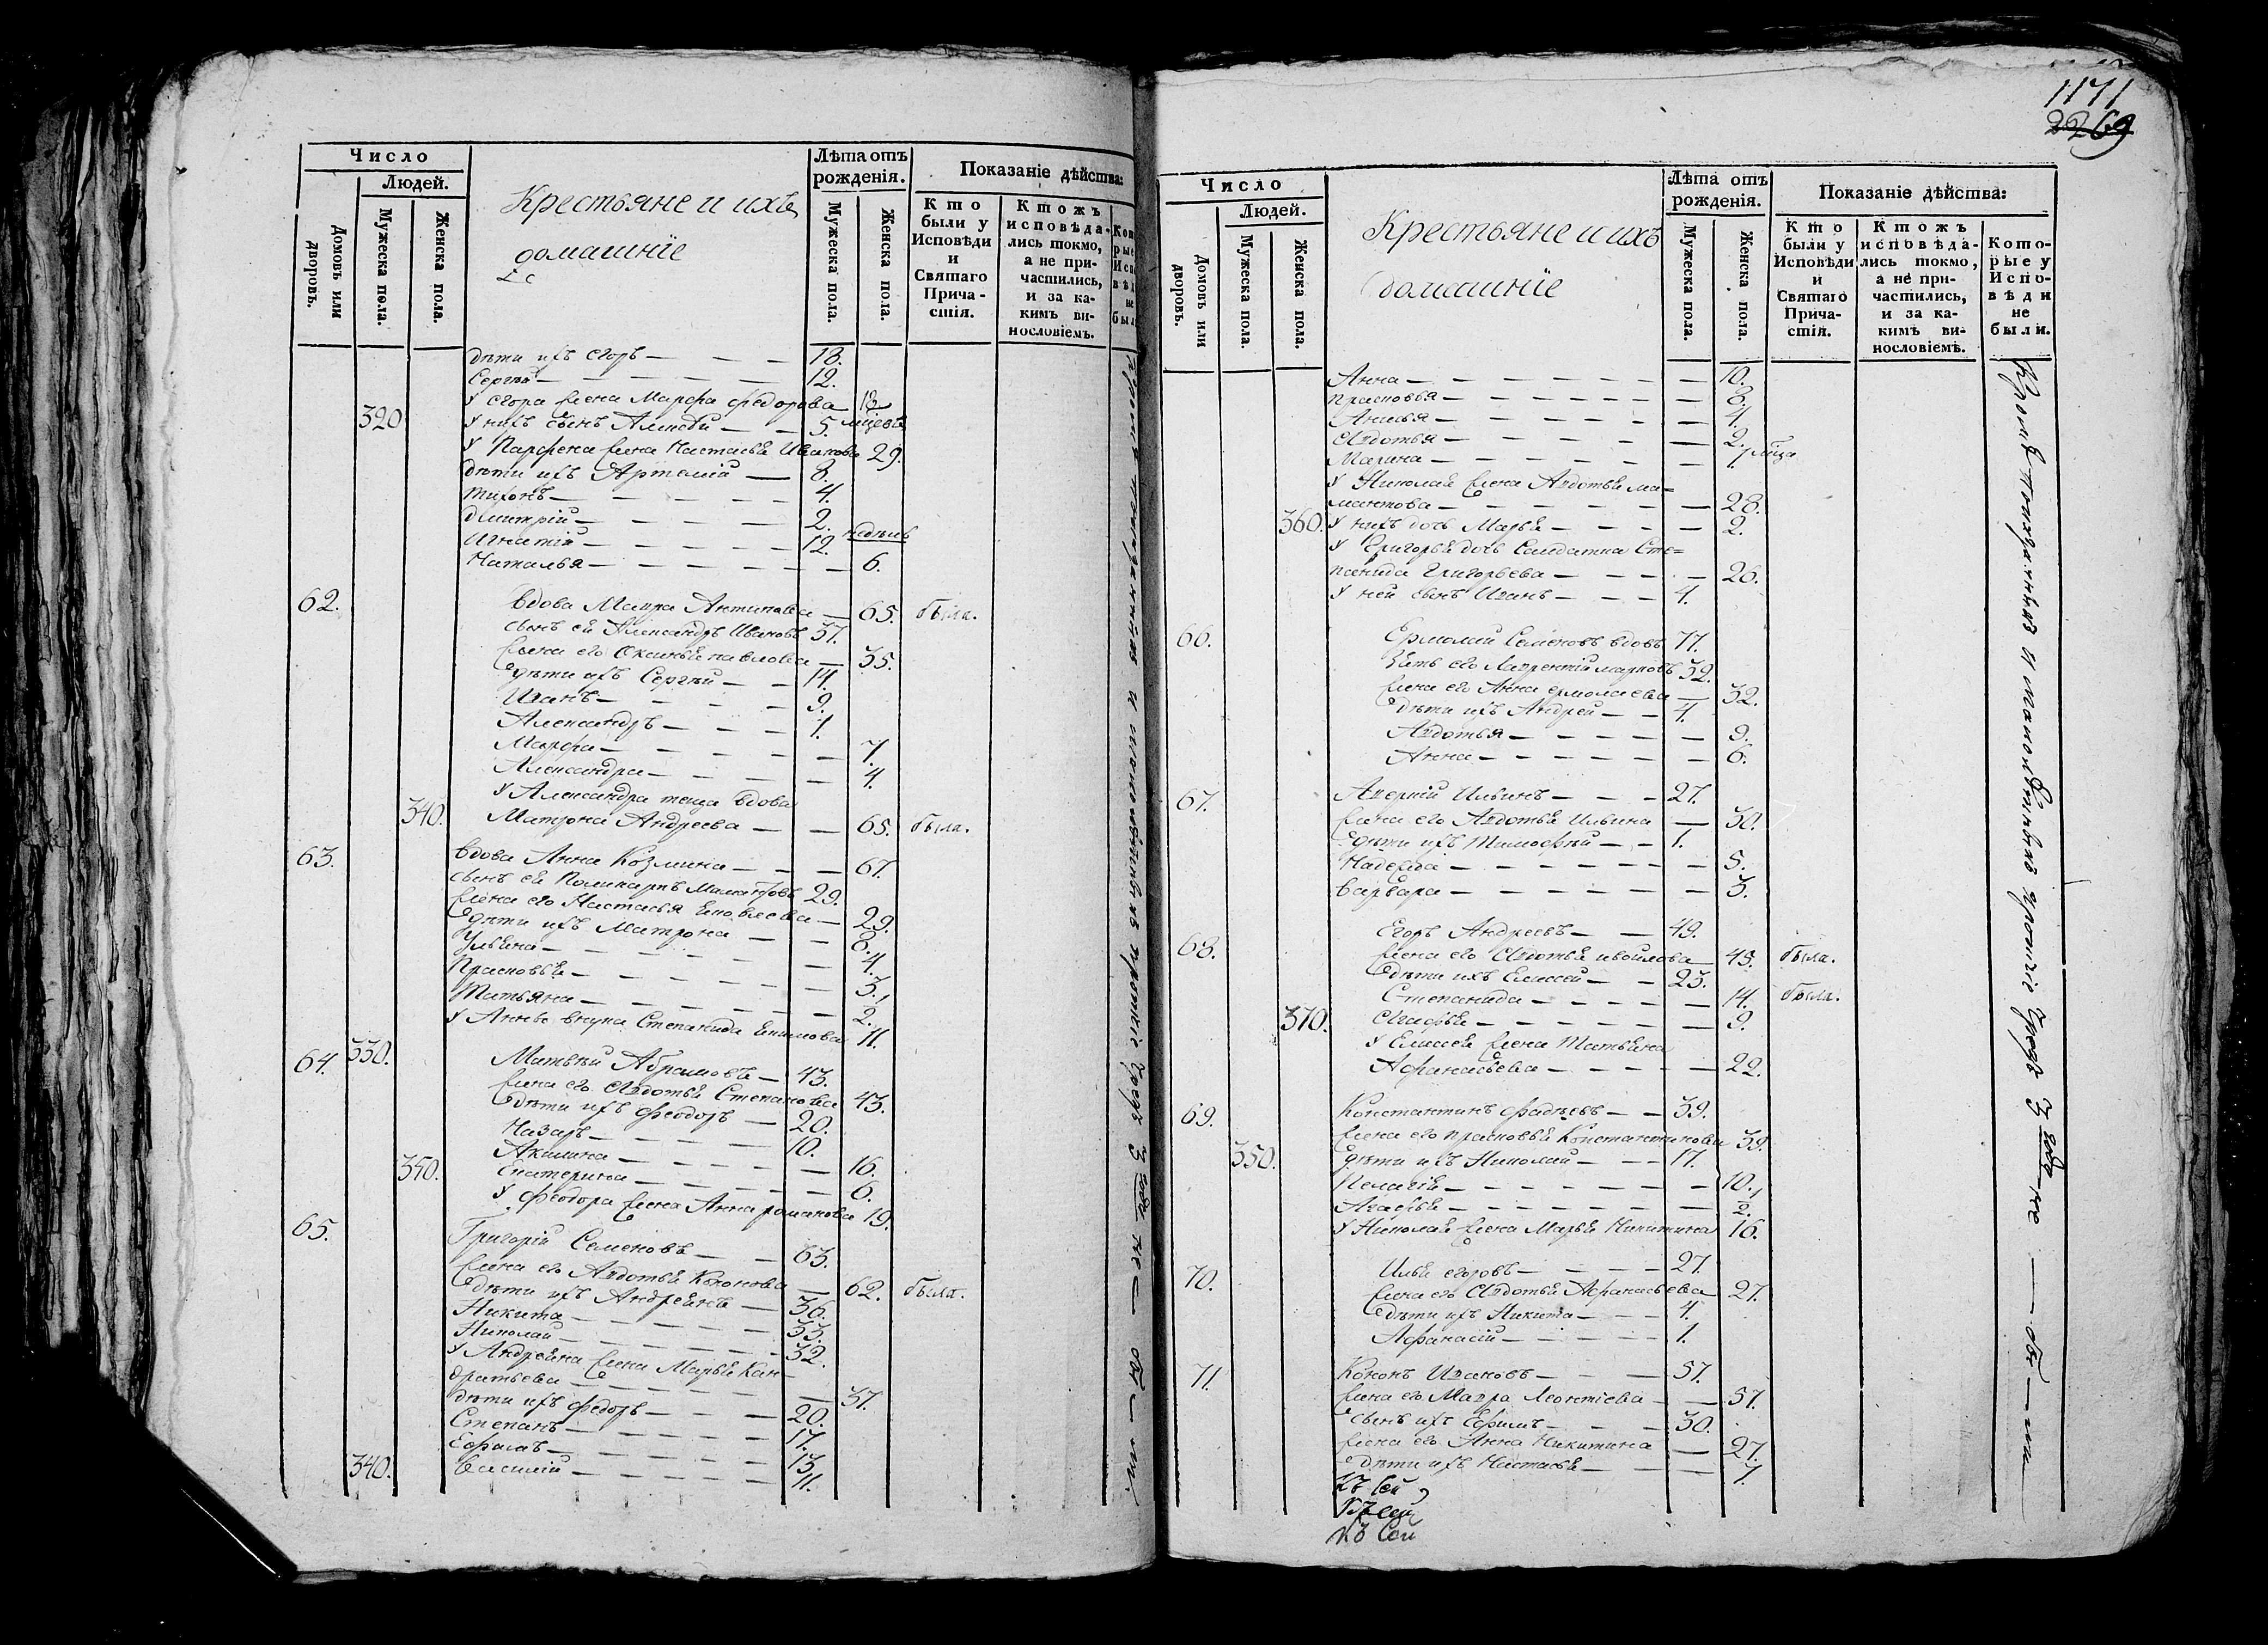 Число
Людей.
Домовъ или дворовъ.
Мужеска пола.
Женска пола.
Крестьяне и ихъ
домашнїе
Лѣта отъ рожденія.
Мужеска пола.
Женска пола.
Показаніе дѣйства:
Кто были у Исповѣди и Святаго Причастія.
Ктожъ исповѣдались токмо, а не причастились, и за какимъ винословіемъ.
дѣти ихъ Егоръ — — — 18.
Сергѣй — — — — — 12.
У Егора жена Марфа Федорова
320 У нихъ сынъ Алексѣй — — 5.
У Парфена жена Настасья Иванова 29.
дѣти ихъ Артемїй — 8.
Тихонъ — — — — — 4.
Дмитрїй — — — — 2.
Игнатїй — — — — — 12.
Наталья — — — — — — 6.
62. Вдова Мавра Антипова — 65. была.
сынъ ей Александръ Ивановъ 37.
жена его Оксинья Павлова — 35.
дѣти ихъ Сергѣй — — 14.
Иванъ — — — — — 9.
Александръ — — — 1.
Марфа — — — — — 7.
Александра — — — — 4.
У Александра теща вдова
340. Матрона Андреева — — 65. была.
63. Вдова Анна Козмина — — — 67.
сынъ ей Поликарпъ 29.
жена его Настасья Яковлева — 29.
дѣти ихъ Матрона — — 8.
Ульяна — — — — — — 4.
Прасковья — — — — — 3.
Татьяна — — — — — — 2.
У Анны внука Степанида Екимова 11.
64. 330. Матвѣй Абрамовъ — 43.
жена его Авдотья Степанова 43.
дѣти ихъ Феодоръ — 20.
Назаръ — — — — 10.
Акилина — — — — — 16.
350. Екатерина — — — — — 6.
У Феодора жена Анна Романова 19.
65. Григорїй Семеновъ — — 63.
жена его Авдотья Кононова — 62. была.
дѣти ихъ Андреянъ — 36.
Никита — — — — — 33.
Николай — — — — — 32.
У Андреяна жена Марья Кон-
дратьева — — — — — 37.
дѣти ихъ Федоръ — — — 20.
Степанъ — — — — — 17.
Ефимъ — — — — — 13.
340. Василїй — — — — — 11.
1171
2269
Число
Людей.
Домовъ или дворовъ.
Мужеска пола.
Женска пола.
Крестьяне и ихъ
домашнїе
Лѣта отъ рожденія.
Мужеска пола.
Женска пола.
Показаніе дѣйства:
Кто были у Исповѣди и Святаго Причастія.
Ктожъ исповѣдались токмо, а не причастились, и за какимъ винословіемъ.
Которые у Исповѣди не были.
Анна — — — — — — — 10.
Прасковья — — — — — — 8.
Анисья — — — — — — 4.
Авдотья — — — — — — 2.
Марина — — — — — —
У Николая жена Авдотья Ма=
мантова — — — — — — 28.
360. У нихъ дочь Марья — — — — 2.
У Григорья дочь Солдатка Сте=
панида Григорьева — — — — 26.
У ней сынъ Иванъ — — — 4.
66. Ермолай Семеновъ вдовъ 77.
Зять его Лаврентїй Марковъ 32.
жена его Анна Ермолаева — 32.
дѣти ихъ Андрей — — 4.
Авдотья — — — — — — 9.
Анна — — — — — — 6.
67. Аверкїй Ильинъ — — — 27.
жена его Авдотья Ильина — 30.
дѣти ихъ Тимофѣй — — 1.
Надежда — — — — — — 5.
Варвара — — — — — — 3.
68. Егоръ Андреевъ — — 49.
жена его Авдотья 45. была.
дѣти ихъ Елисей — — 23.
Степанида — — — — — 14. была.
370. Агафья — — — — — — 9.
У Елисея жена Татьяна
Афанасьева — — — — — 22.
69. Константинъ Фадѣевъ — — 39.
жена его Прасковья Константинова 39.
350. дѣти ихъ Николай — — — 17.
Пелагїя — — — — — — 10.
Агафья — — — — — — 2.
У Николая жена Марья Никитина 16.
70. Илья Егоровъ — — — — 27.
жена его Авдотья Афанасьева 27.
дѣти ихъ Никита — — — 4.
Афанасїй — — — — — 1.
71. Кононъ Ивановъ — — — 57.
жена его Мавра Леонтїева — — 57.
сынъ ихъ Ефимъ — — — 30.
жена его Анна Никитина — 27.
дѣти ихъ Настасья — — — 7.